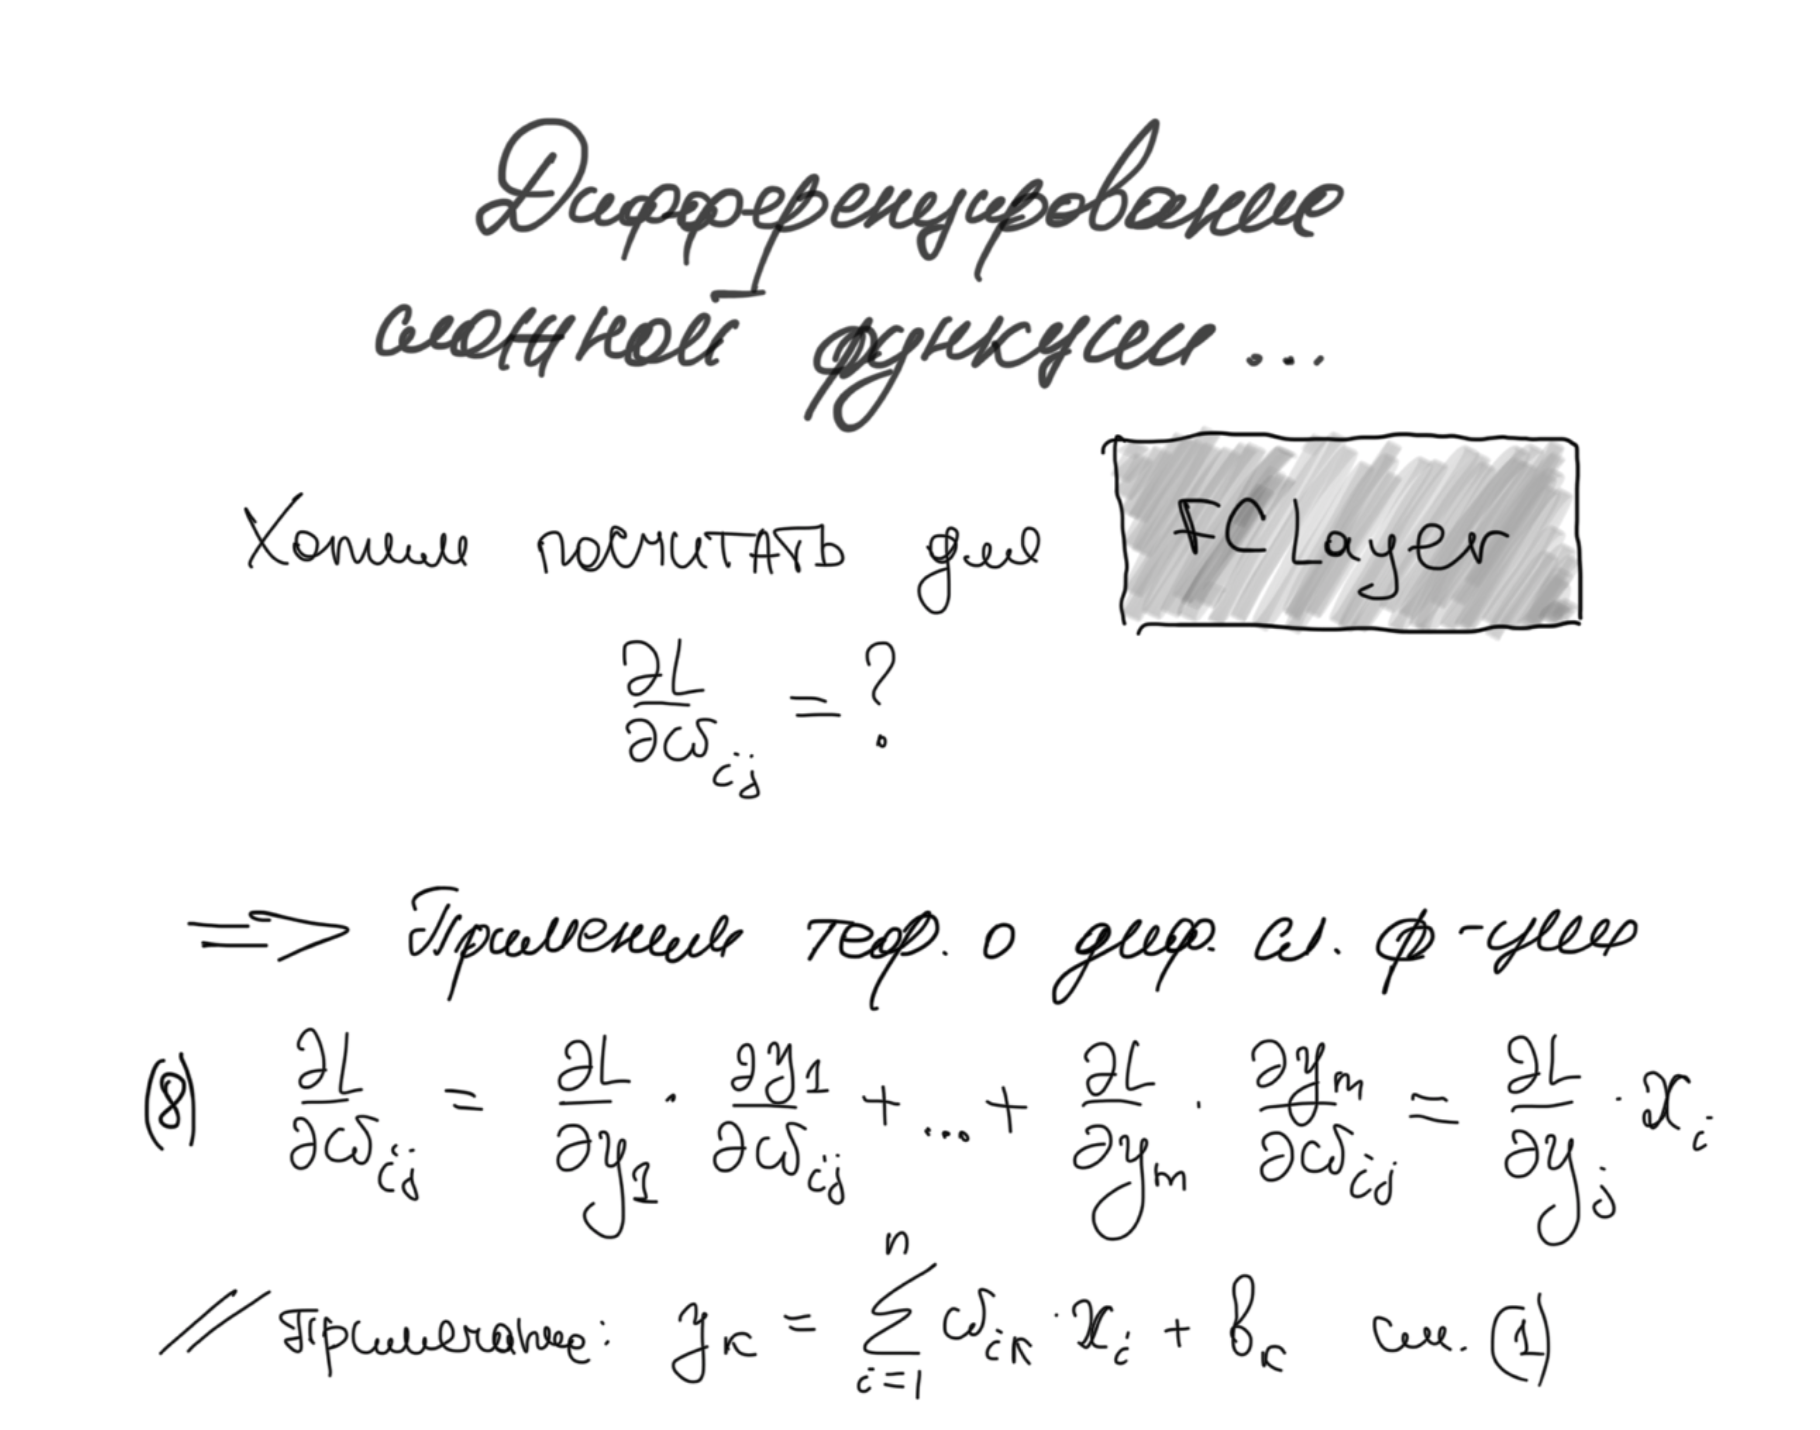 Дифференцирование
сложной функции...
Хотим посчитать для FCLayer
∂L/∂ω_ij = ?
=> Применим теор. о диф. сл. ф-ции
(8) ∂L/∂ω_ij = ∂L/∂y_1 · ∂y_1/∂ω_ij + ... + ∂L/∂y_m · ∂y_m/∂ω_ij = ∂L/∂y_j · x_i
// Примечание: y_k = ∑_{i=1}^{n} ω_ik · x_i + b_k см. (1)